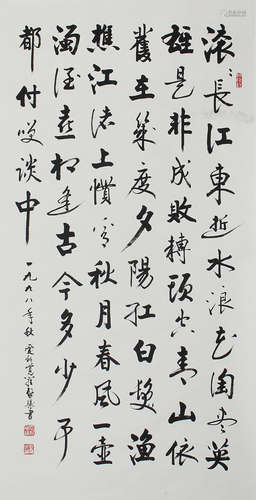 滚〻長江東逝水浪花淘尽英
雄是非成敗轉頭空青山依
舊在幾度夕陽紅白髮漁
樵江渚上慣看秋月春風一壺
濁酒喜相逢古今多少事
都付笑談中
一九九八年秋